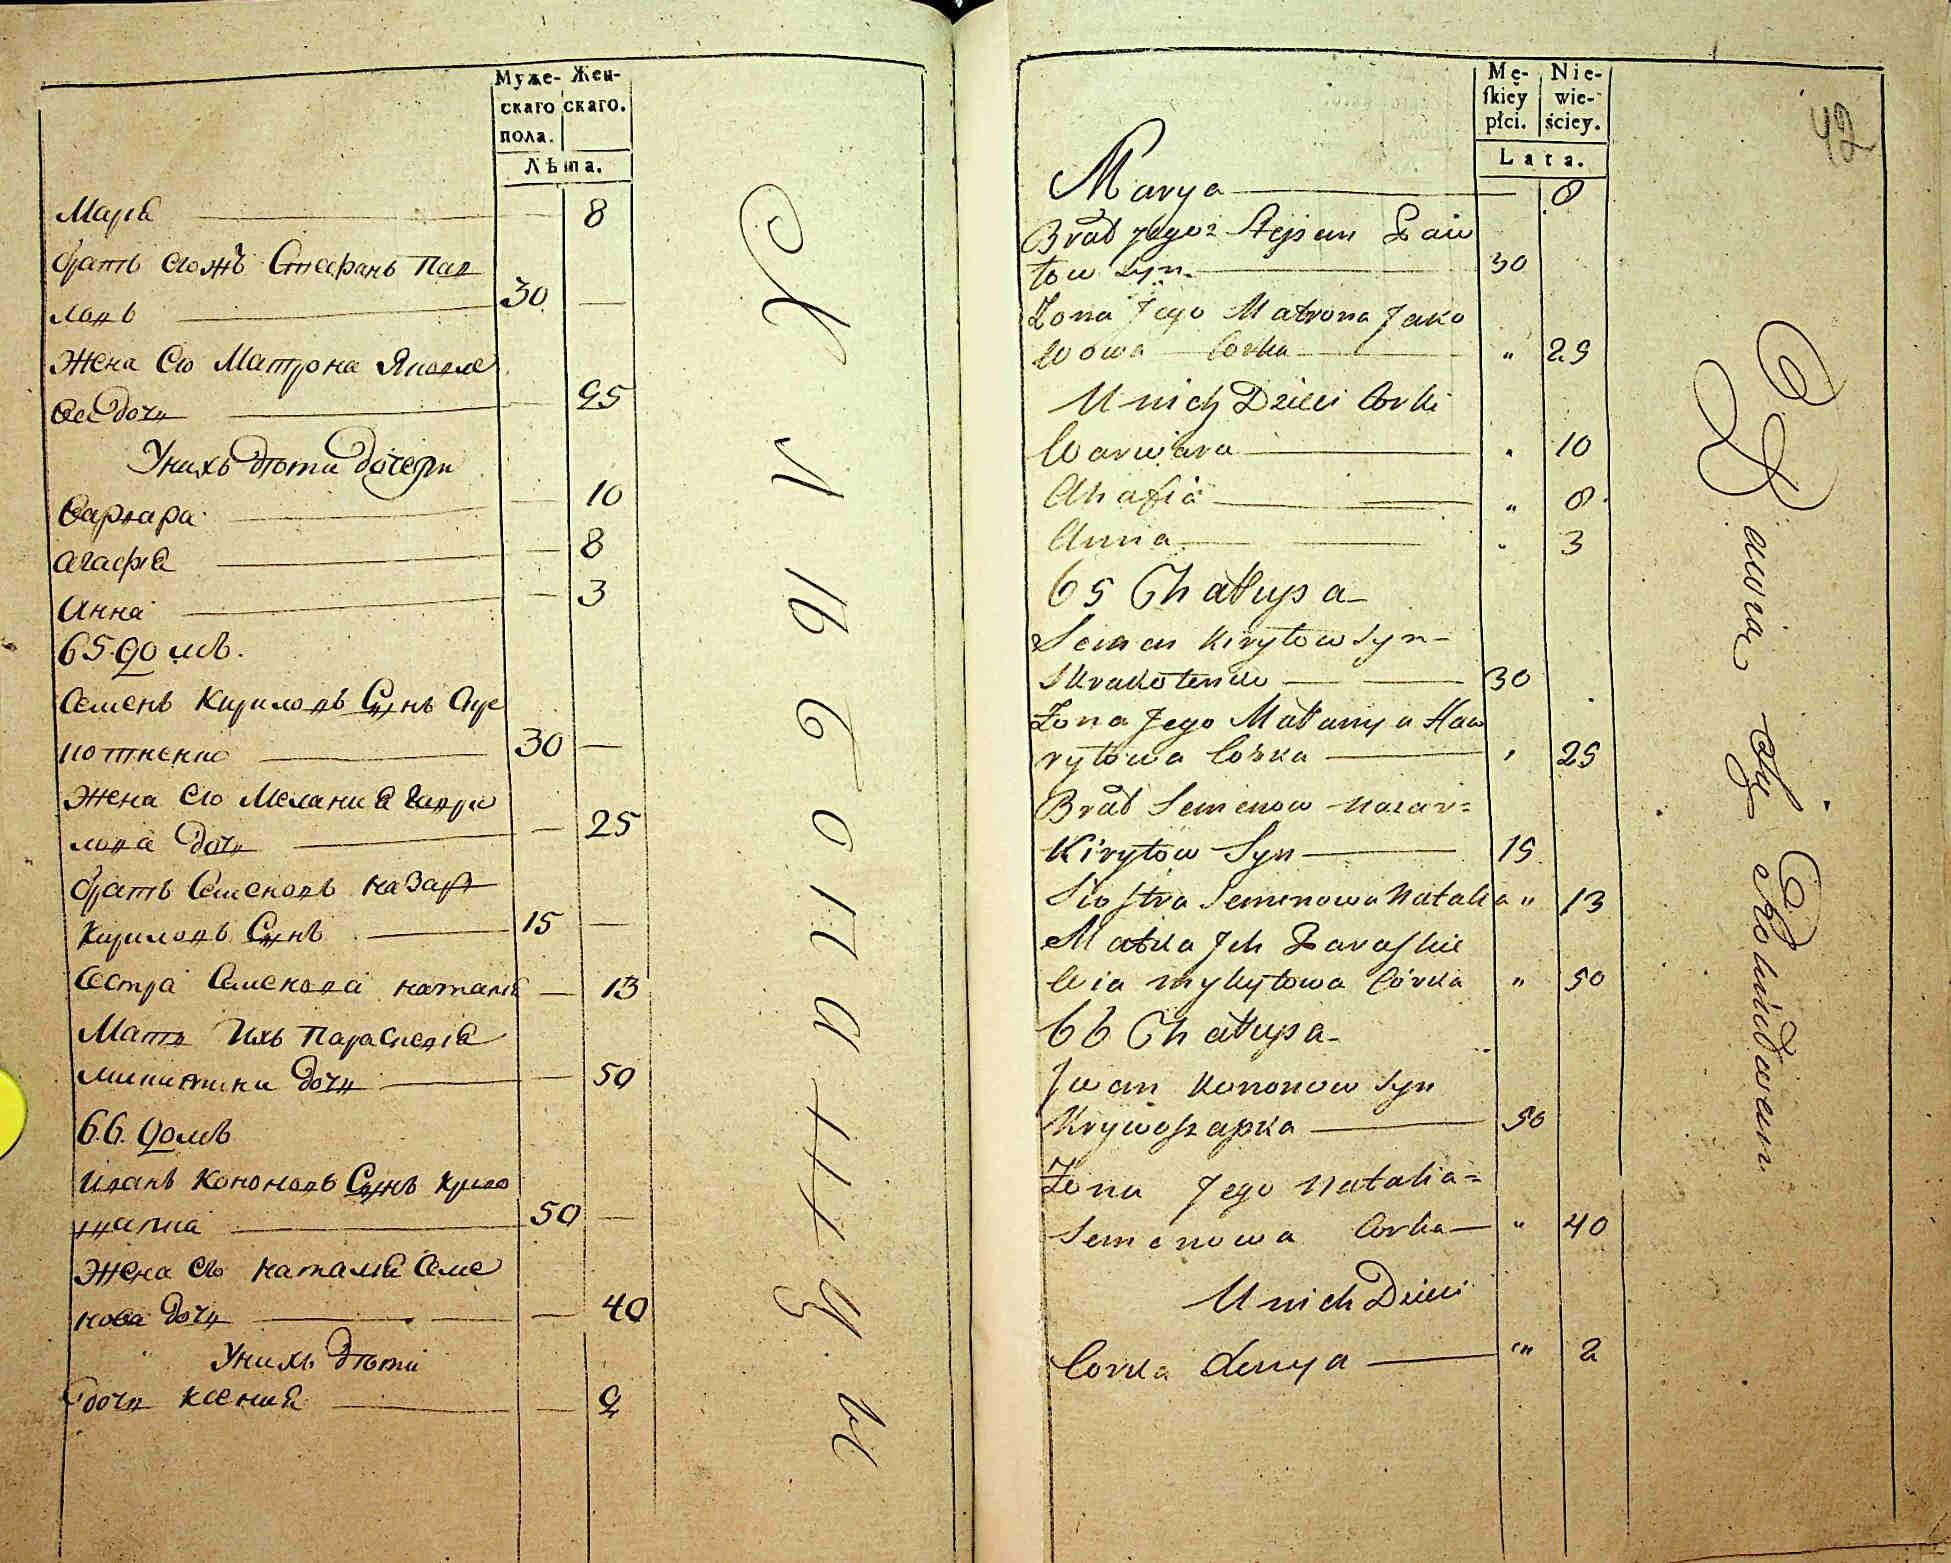 Муже-
скаго
пола.
Жен-
скаго.
Лѣта.
Марія 8
братъ Єгожъ Стефанъ Пав
ловъ 30
Жена Єго Матрона Яковле
ва дочь 25
У нихъ дѣти дочери
Варвара 10
Агафія 8
Анна 3
65. домъ.
Семенъ Кириловъ Сынъ Скре
котненко 30
Жена Єго Меланія Гаври
лова дочь 25
братъ Семеновъ Назаръ
Кириловъ Сынъ 15
Сестра Семенова Наталія 13
Мать Ихъ Параскевія
Микитина дочь 50
66. домъ
Иванъ Кононовъ Сынъ Криво
шапка 50
Жена Єго Наталія Семе
нова дочь 40
У нихъ дѣти
дочь Ксенія 2
Mę-
ſkiey
płci.
Nie-
wie-
ściey.
Lata.
42
Marya 8
Brat Jegoż Stefan Paw
łow Syn 30
Zona Jego Matrona Jako
wowa Corka " 25
U nich Dzieci Corki
Warwara " 10
Ahafia " 8
Anna " 3
65 Chałupa
Semen Kiryłow Syn
Skrakotenko 30
Zona Jego Małanya Haw
ryłowa Corka " 25
Brat Semenow Nazar
Kiryłow Syn 15
Siostra Semenowa Natalia " 13
Matka Jch Paraskie
wia Mykytowa Córka " 50
66 Chałupa
Jwan Kononow Syn
Krywoszapka 50
Zona Jego Natalia
Semenowa Corka " 40
U nich Dzieci
Corka Xenya " 2